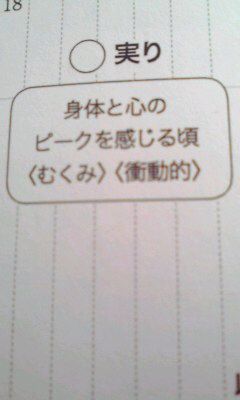 18
○ 実り
身体と心の
ピークを感じる頃
〈むくみ〉〈衝動的〉